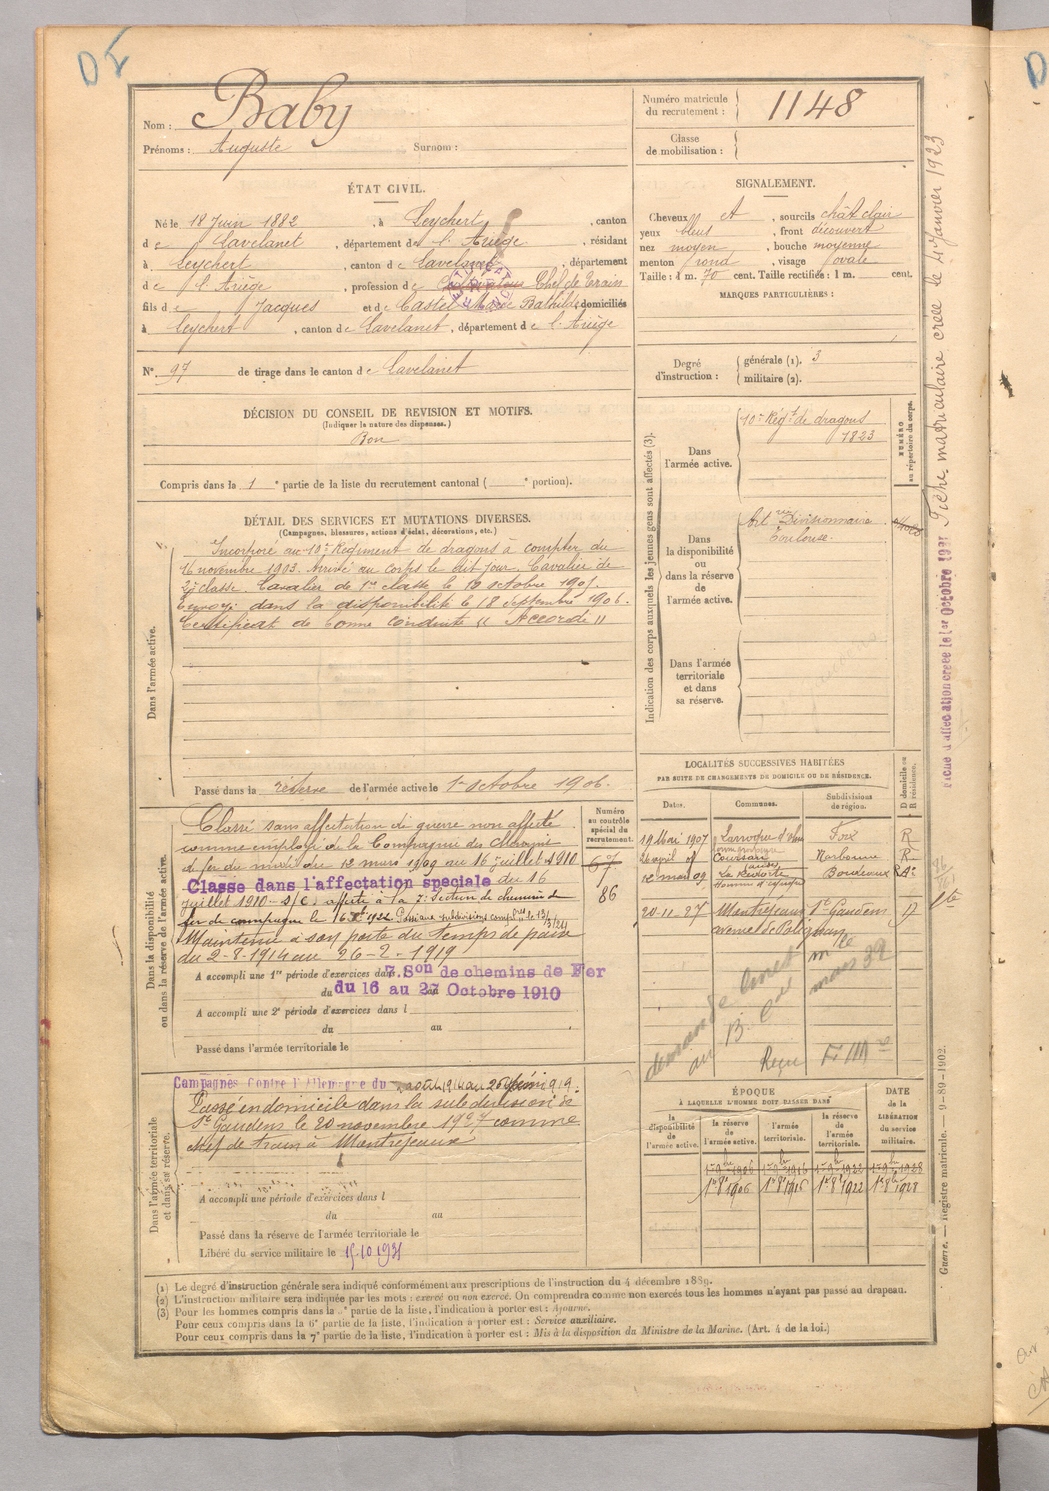 DI
Nom : Baby
Prénoms : Auguste Surnom :
Numéro matricule
du recrutement : 1148
Classe
de mobilisation :
ÉTAT CIVIL.
Né le 18 Juin 1882 , à Leychert , canton
de Lavelanet , département de l'Ariège , résidant
à Leychert , canton de Lavelanet , département
de l'Ariège , profession de Cultivateur Chef de train
fils de Jacques et de Castel Marie Bathilde, domiciliés
à Leychert , canton de Lavelanet , département de l'Ariège
N° 97 de tirage dans le canton de Lavelanet
SIGNALEMENT.
Cheveux et , sourcils chât clair
yeux bleus , front découvert
nez moyen , bouche moyenne
menton rond , visage ovale
Taille : 1 m. 70 cent. Taille rectifiée : 1 m. cent.
MARQUES PARTICULIÈRES :
Degré
d'instruction :
générale (1). 3
militaire (2).
DÉCISION DU CONSEIL DE REVISION ET MOTIFS.
(Indiquer la nature des dispenses.)
Bon
Compris dans la 1e partie de la liste du recrutement cantonal ( e portion).
DÉTAIL DES SERVICES ET MUTATIONS DIVERSES.
(Campagnes, blessures, actions d'éclat, décorations, etc.)
Dans l'armée active.
Incorporé au 10e Régiment de dragons à compter du
16 novembre 1903. Arrivé au corps le dit jour. Cavalier de
2e classe. Cavalier de 1re classe le 10 octobre 190
Envoyé dans la disponibilité le 18 Septembre 1906.
Certificat de bonne conduite "Accordé"
Passé dans la réserve de l'armée active le 1er octobre 1906.
Indication des corps auxquels les jeunes gens sont affectés (3).
NUMÉRO
au répertoire du corps.
Dans
l'armée active.
10e Régt de dragons
1823
Dans
la disponibilité
ou
dans la réserve
de
l'armée active.
Art Divisionnaire
Toulouse.
Dans l'armée
territoriale
et dans
sa réserve.
Fiche d'affectation créée le 1er Octobre 1931 Fiche matriculaire créée le 4 Janvier 1923
Dans la disponibilité
ou dans la réserve de l'armée active.
Numéro
au contrôle
spécial du
recrutement.
67
86
Classé sans affectation de guerre non affecté
comme employé de la Compagnie des Chemins
de fer du midi du 12 mars 1909 au 16 juillet 1910
Classé dans l'affectation speciale du 16
juillet 1910 - S/C, affecté à la 7e Section de chemins de
fer de campagne le
Maintenu à son poste du temps de paix
du 2-8-1914 au 26-2-1919
A accompli une 1re période d'exercices dans 7. Son de chemins de Fer
du 16 au 27 Octobre 1910
A accompli une 2e période d'exercices dans l
du au
Passé dans l'armée territoriale le
LOCALITÉS SUCCESSIVES HABITÉES
PAR SUITE DE CHANGEMENTS DE DOMICILE OU DE RÉSIDENCE.
Dates. Communes. Subdivisions
de région.
D domicile ou
R résidence.
19 Mai 1907 Larroque d'Olmes Foix R
26 april 08 Coursan Narbonne R
12 mars 09 Bordeaux R
20-11-27 Montréjeau St Gaudens D
avenue de Polignan
Dans l'armée territoriale
et dans sa réserve.
Campagnes Contre l'Allemagne du 2 août 1914 au 26 février 1919.
Passé en domicile dans la subdivision de
St Gaudens le 20 novembre 1927 comme
chef de train à Montréjeaux
A accompli une période d'exercices dans l
du au
Passé dans la réserve de l'armée territoriale le
Libéré du service militaire le 15.10.1931
ÉPOQUE
À LAQUELLE L'HOMME DOIT PASSER DANS
DATE
de la
LIBÉRATION
du service
militaire.
la
disponibilité
de
l'armée active.
la réserve
de
l'armée active.
l'armée
territoriale.
la réserve
de
l'armée
territoriale.
1er 9bre 1906 1er 9bre 1916 1er 9bre 1922 1er 9bre 1928
1er 8bre 1906 1er 8bre 1916 1er 8bre 1922 1er 8bre 1928
Guerre. — Registre matricule. — 9-89-1902.
(1) Le degré d'instruction générale sera indiqué conformément aux prescriptions de l'instruction du 4 décembre 1889.
(2) L'instruction militaire sera indiquée par les mots : exercé ou non exercé. On comprendra comme non exercés tous les hommes n'ayant pas passé au drapeau.
(3) Pour les hommes compris dans la e partie de la liste, l'indication à porter est : Ajourné.
Pour ceux compris dans la 6e partie de la liste, l'indication à porter est : Service auxiliaire.
Pour ceux compris dans la 7e partie de la liste, l'indication à porter est : Mis à la disposition du Ministre de la Marine. (Art. 4 de la loi.)